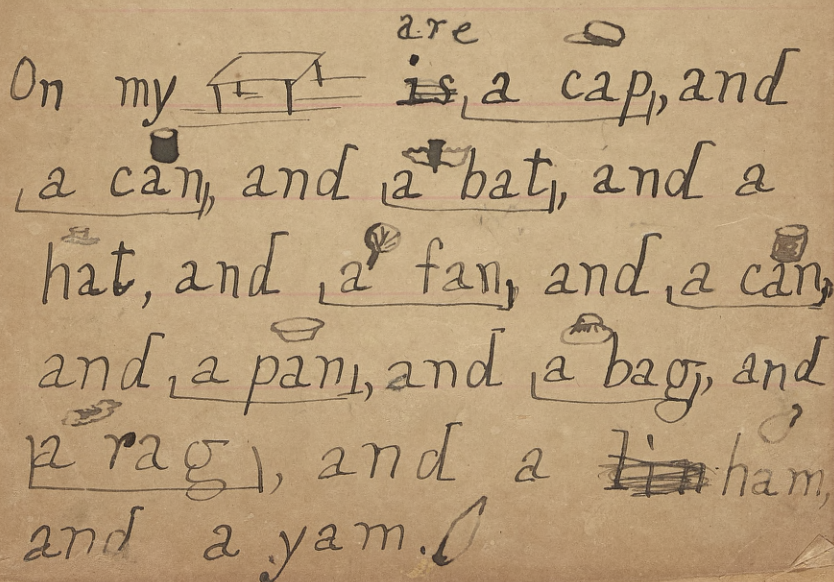 are
On my is a cap, and
a can, and a bat, and a
hat, and a fan, and a can,
and a pan, and a bag, and
a rag, and a lin ham,
and a yam.